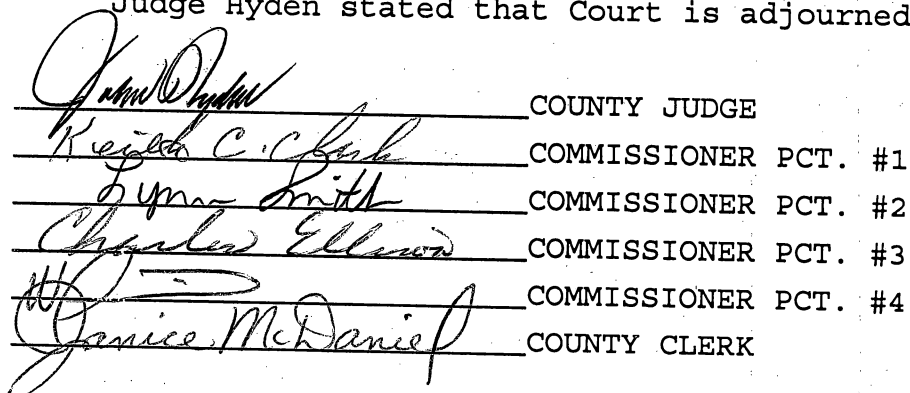 Judge Hyden stated that Court is adjourned
John Hyden COUNTY JUDGE
Keith C. Clark COMMISSIONER PCT. #1
Lynn Smith COMMISSIONER PCT. #2
Charles Ellison COMMISSIONER PCT. #3
COMMISSIONER PCT. #4
Janice McDaniel COUNTY CLERK